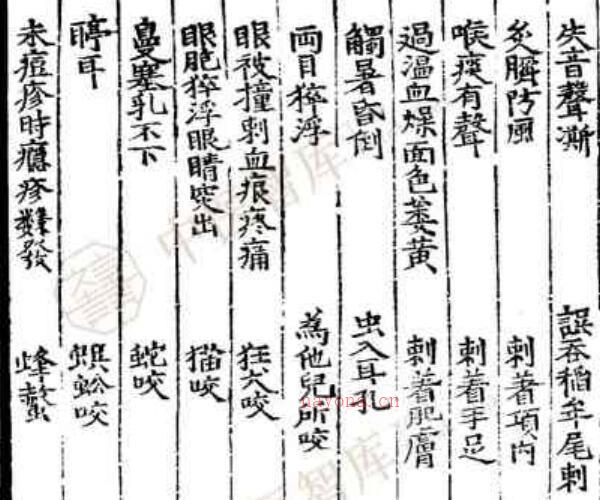 失音聲澌 誤吞稲牟尾刺
灸瘢防風 刺着項內
喉痰有聲 刺着手足
過溫血燥面色萎黃 刺着肥膚
觸暑昏倒 虫入耳孔
両目猝浮 為他兒所咬
眼被撞刺血痕疼痛 狂犬咬
眼胞猝浮眼睛突出 猫咬
鼻塞乳不下 蛇咬
聤耳 蜈蚣咬
未痘疹時癮疹難發 蜂螫
nayona.cn